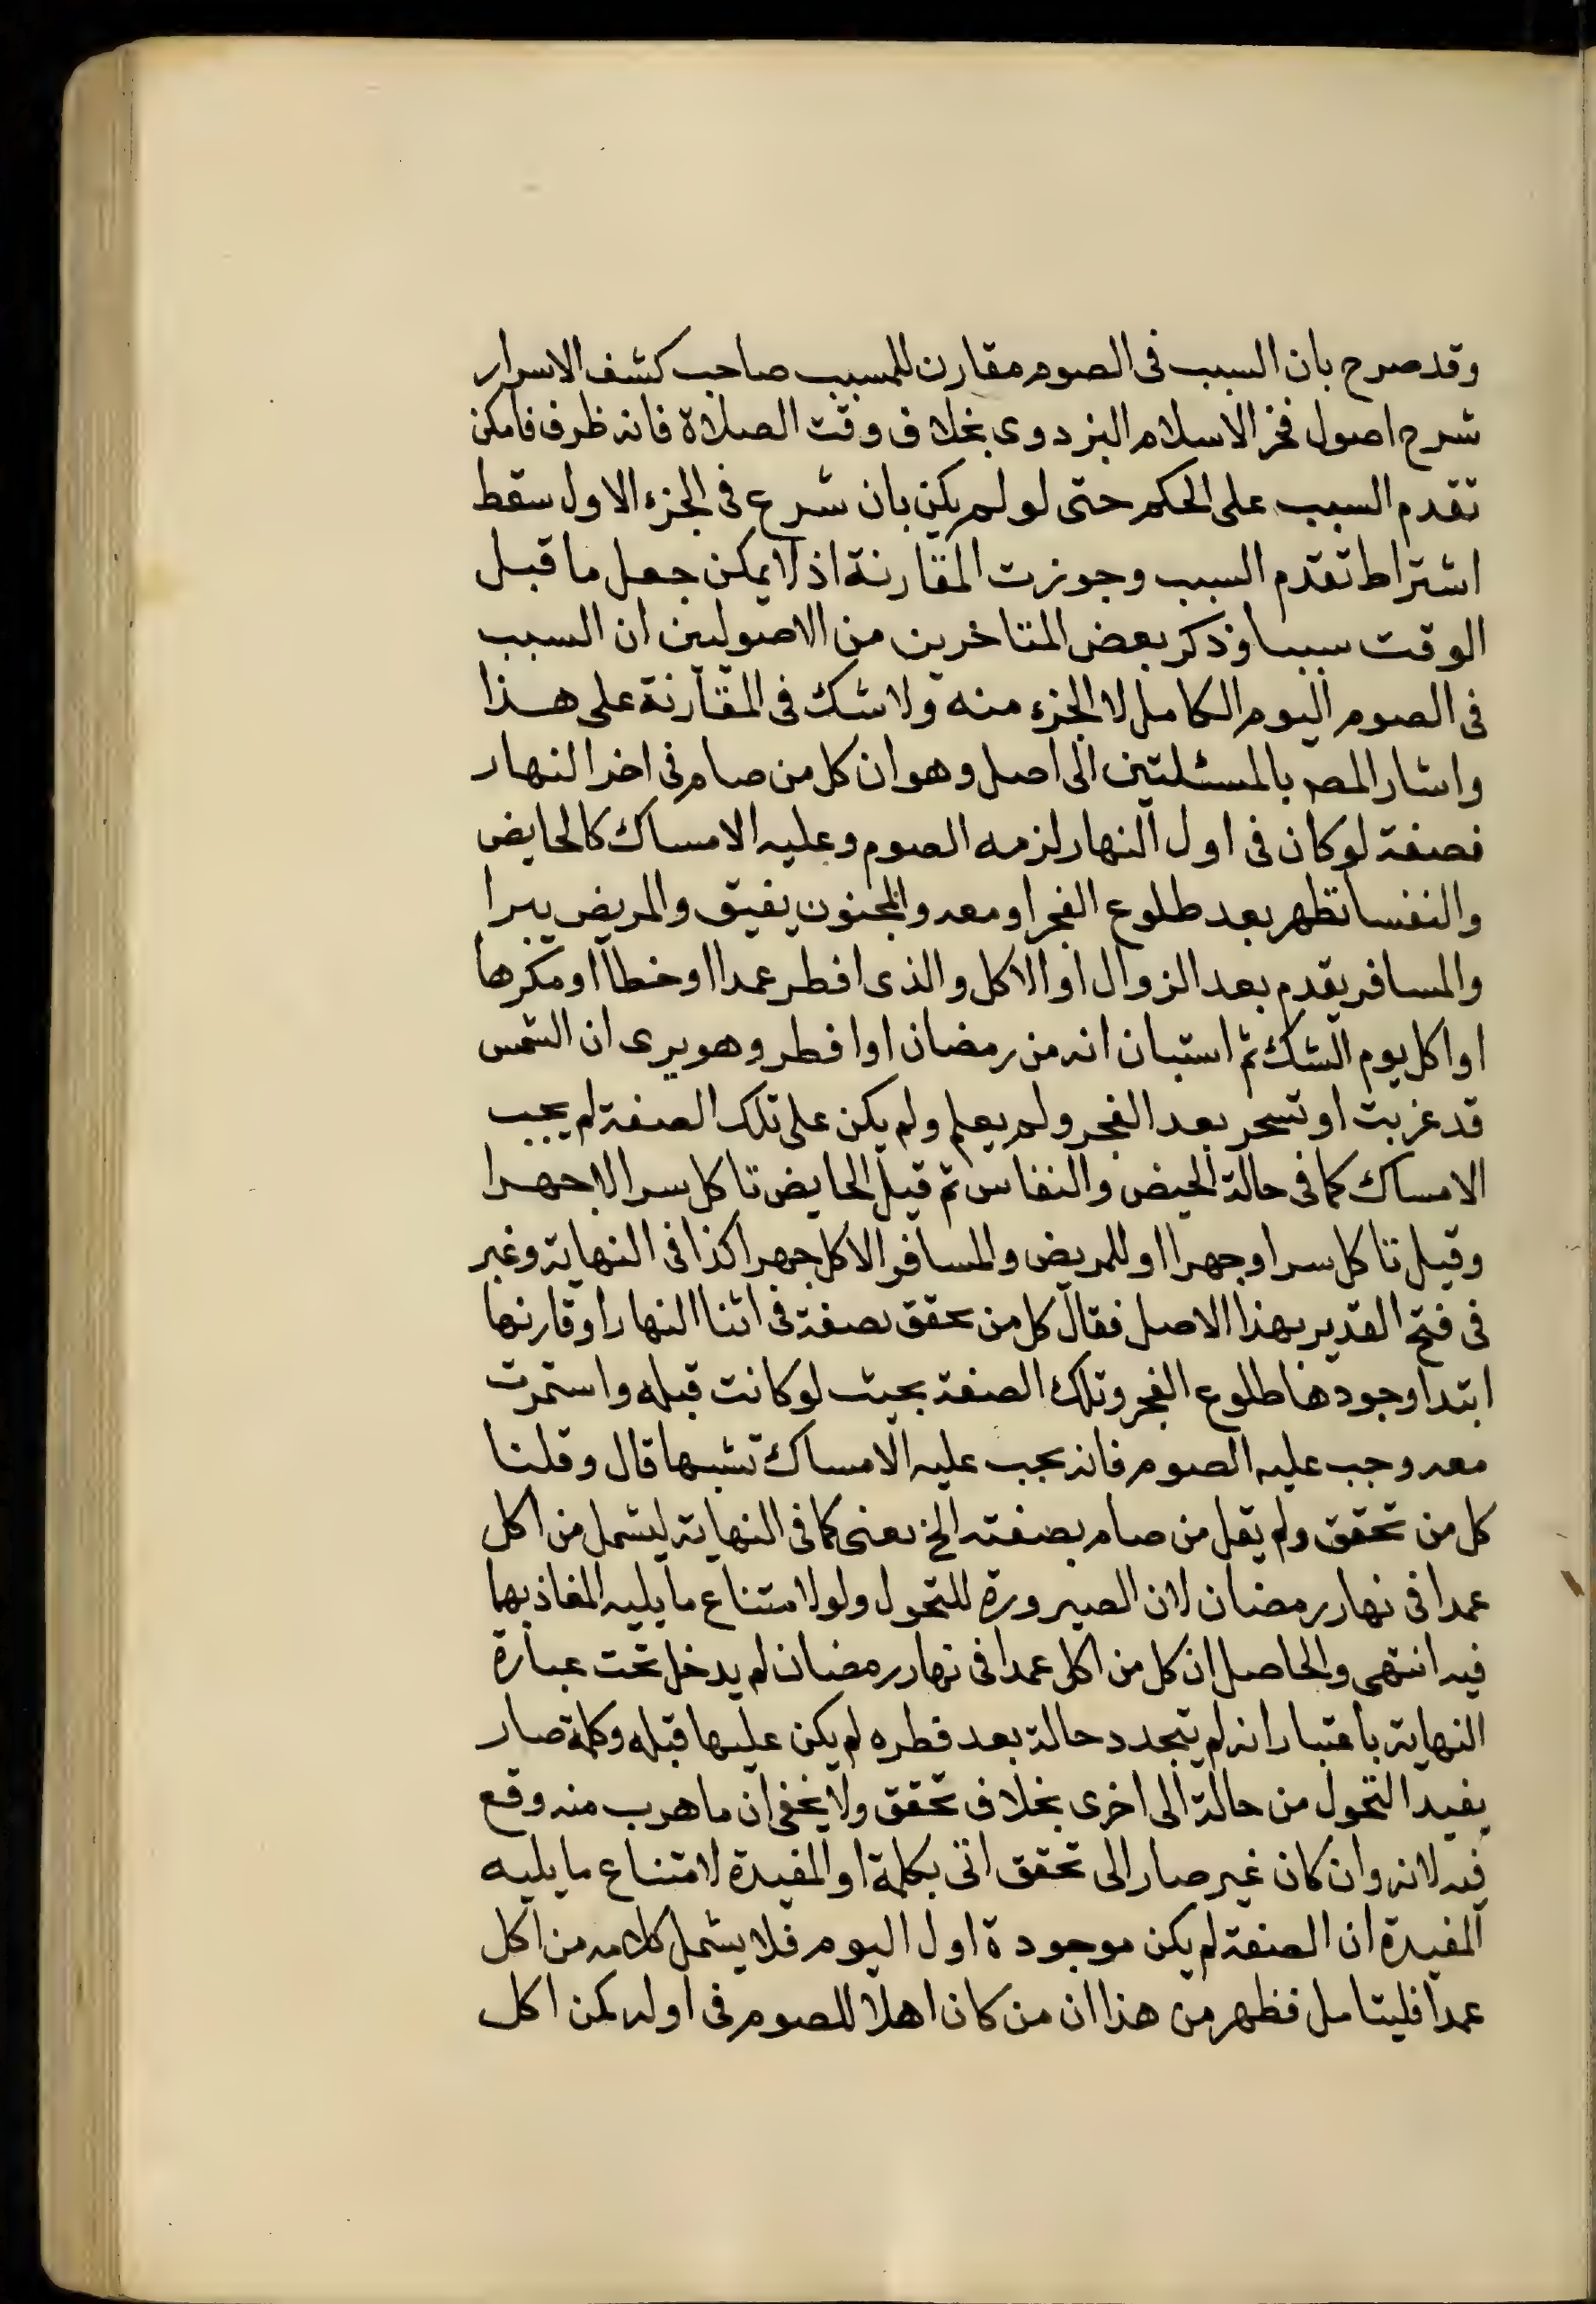 وقد صرح بان السبب فى الصوم مقارن للمسبب صاحب كشف الاسرار
شرح اصول فخر الاسلام البزدوى بخلاف وقت الصلاة فانه ظرف فامكن
تقدم السبب على الحكم حتى لو لم يكن بان شرع فى الجزء الاول سقط
اشتراط تقدم السبب وجوزت المقارنة اذ لا يمكن جعل ما قبل
الوقت سببا وذكر بعض المتاخرين من الاصوليين ان السبب
فى الصوم اليوم الكامل لا الجزء منه ولا شك فى المقارنة على هذا
واشار المص بالمسئلتين الى اصل وهو ان كل من صام فى اخر النهار
بصفة لو كان فى اول النهار لزمه الصوم وعليه الامساك كالحايض
والنفسا تطهر بعد طلوع الفجر او معه والمجنون يفيق والمريض يبرا
والمسافر يقدم بعد الزوال او الاكل والذى افطر عمدا او خطأ او مكرها
او اكل يوم الشك ثم استبان انه من رمضان او افطر وهو يرى ان الشمس
قد غربت او تسحر بعد الفجر ولم يعلم ولم يكن على تلك الصفة لم يجب
الامساك كما فى حالة الحيض والنفاس ثم قيل الحايض تاكل سرا لا جهرا
وقيل تاكل سرا وجهرا او للمريض والمسافر الاكل جهرا كذا فى النهاية وغير
فى فتح القدير بهذا الاصل فقال كل من تحقق بصفة فى اثنا النهار او قارنها
ابتدا وجودها طلوع الفجر وتلك الصفة بحيث لو كانت قبله واستمرت
معه وجب عليه الصوم فانه يجب عليه الامساك تشبها قال وقلنا
كل من تحقق ولم يقل من صام بصفته الخ يعنى كما فى النهاية ليشمل من اكل
عمدا فى نهار رمضان لان الصيرورة للتحول ولو لامتناع ما يليه المفاذ بهما
فيه انتهى والحاصل ان كل من اكل عمدا فى نهار رمضان لم يدخل تحت عبارة
النهاية باعتبار انه لم يتجدد حالة بعد فطره لم يكن عليها قبله وكلمة صار
يفيد التحول من حالة الى اخرى بخلاف تحقق ولا يخفى ان ما هرب منه وقع
فيه لانه وان كان غير صار الى تحقق اتى بكلمة او المفيدة لامتناع ما يليه
المفيدة ان الصفة لم يكن موجودة اول اليوم فلا يشمل كلامه من اكل
عمدا فليتامل فظهر من هذا ان من كان اهلا للصوم فى اوله كمن اكل